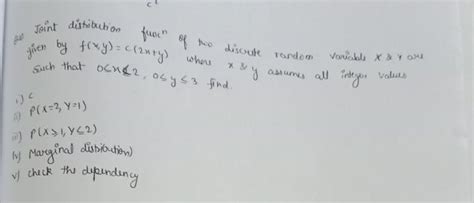 Joint distribution funcⁿ of two discrete random variables X & Y are
given by f(x,y) = c(2x+y) where x & y assumes all integer values
such that 0≤x≤2, 0≤y≤3 find.
i) c
ii) P(X=2, Y=1)
iii) P(X≥1, Y≤2)
iv) Marginal distribution)
v) check the dependency